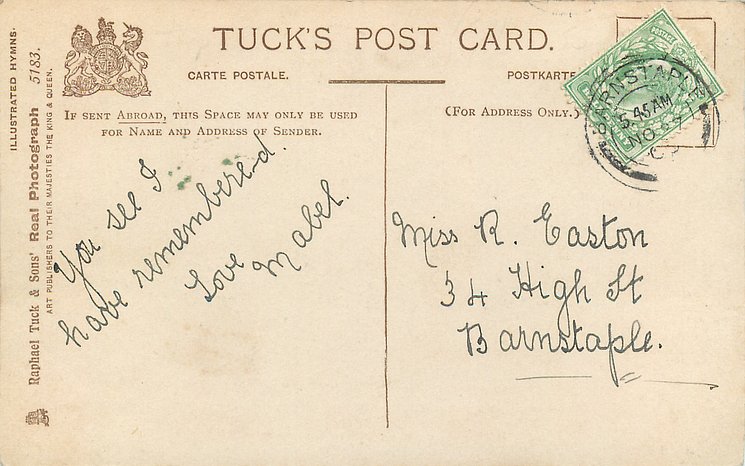 TUCK'S POST CARD.
CARTE POSTALE.
POSTKARTE
IF SENT ABROAD, THIS SPACE MAY ONLY BE USED
FOR NAME AND ADDRESS OF SENDER.
(FOR ADDRESS ONLY.)
BARNSTAPLE
5.45AM
NO
ILLUSTRATED HYMNS.
Raphael Tuck & Sons' Real Photograph 5183.
ART PUBLISHERS TO THEIR MAJESTIES THE KING & QUEEN.
You see I
have remembered.
Love
Mabel.
Miss R. Easton
34 High St
Barnstaple.